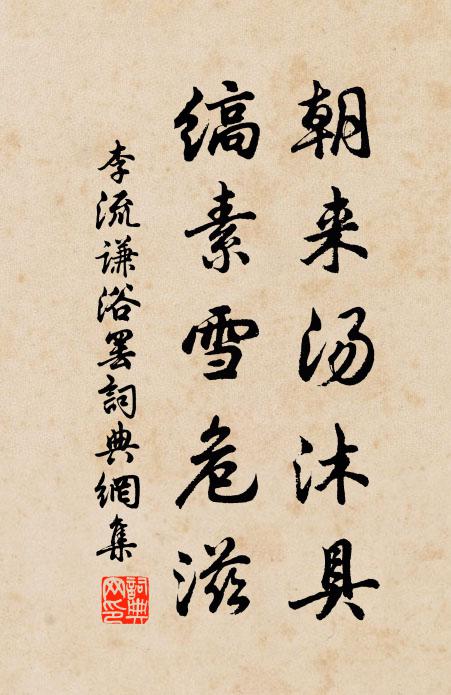 朝来汤沐具
缟素雪危滋
李流谦浴罢詞典網集
詞典網印